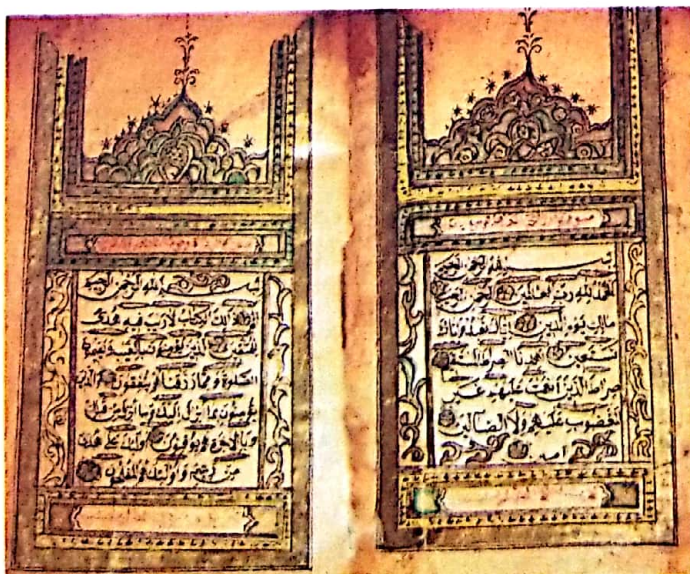 بسم الله الرحمن الرحيم
الحمد لله رب العالمين الرحمن الرحيم
مالك يوم الدين اياك نعبد واياك
نستعين اهدنا الصراط المستقيم
صراط الذين انعمت عليهم غير
المغضوب عليهم ولا الضالين
امين
بسم الله الرحمن الرحيم
الم ذلك الكتاب لا ريب فيه هدى
للمتقين الذين يؤمنون بالغيب ويقيمون
الصلوة ومما رزقناهم ينفقون والذين
يؤمنون بما انزل اليك وما انزل من قبلك
وبالاخرة هم يوقنون اولئك على هدى
من ربهم واولئك هم المفلحون